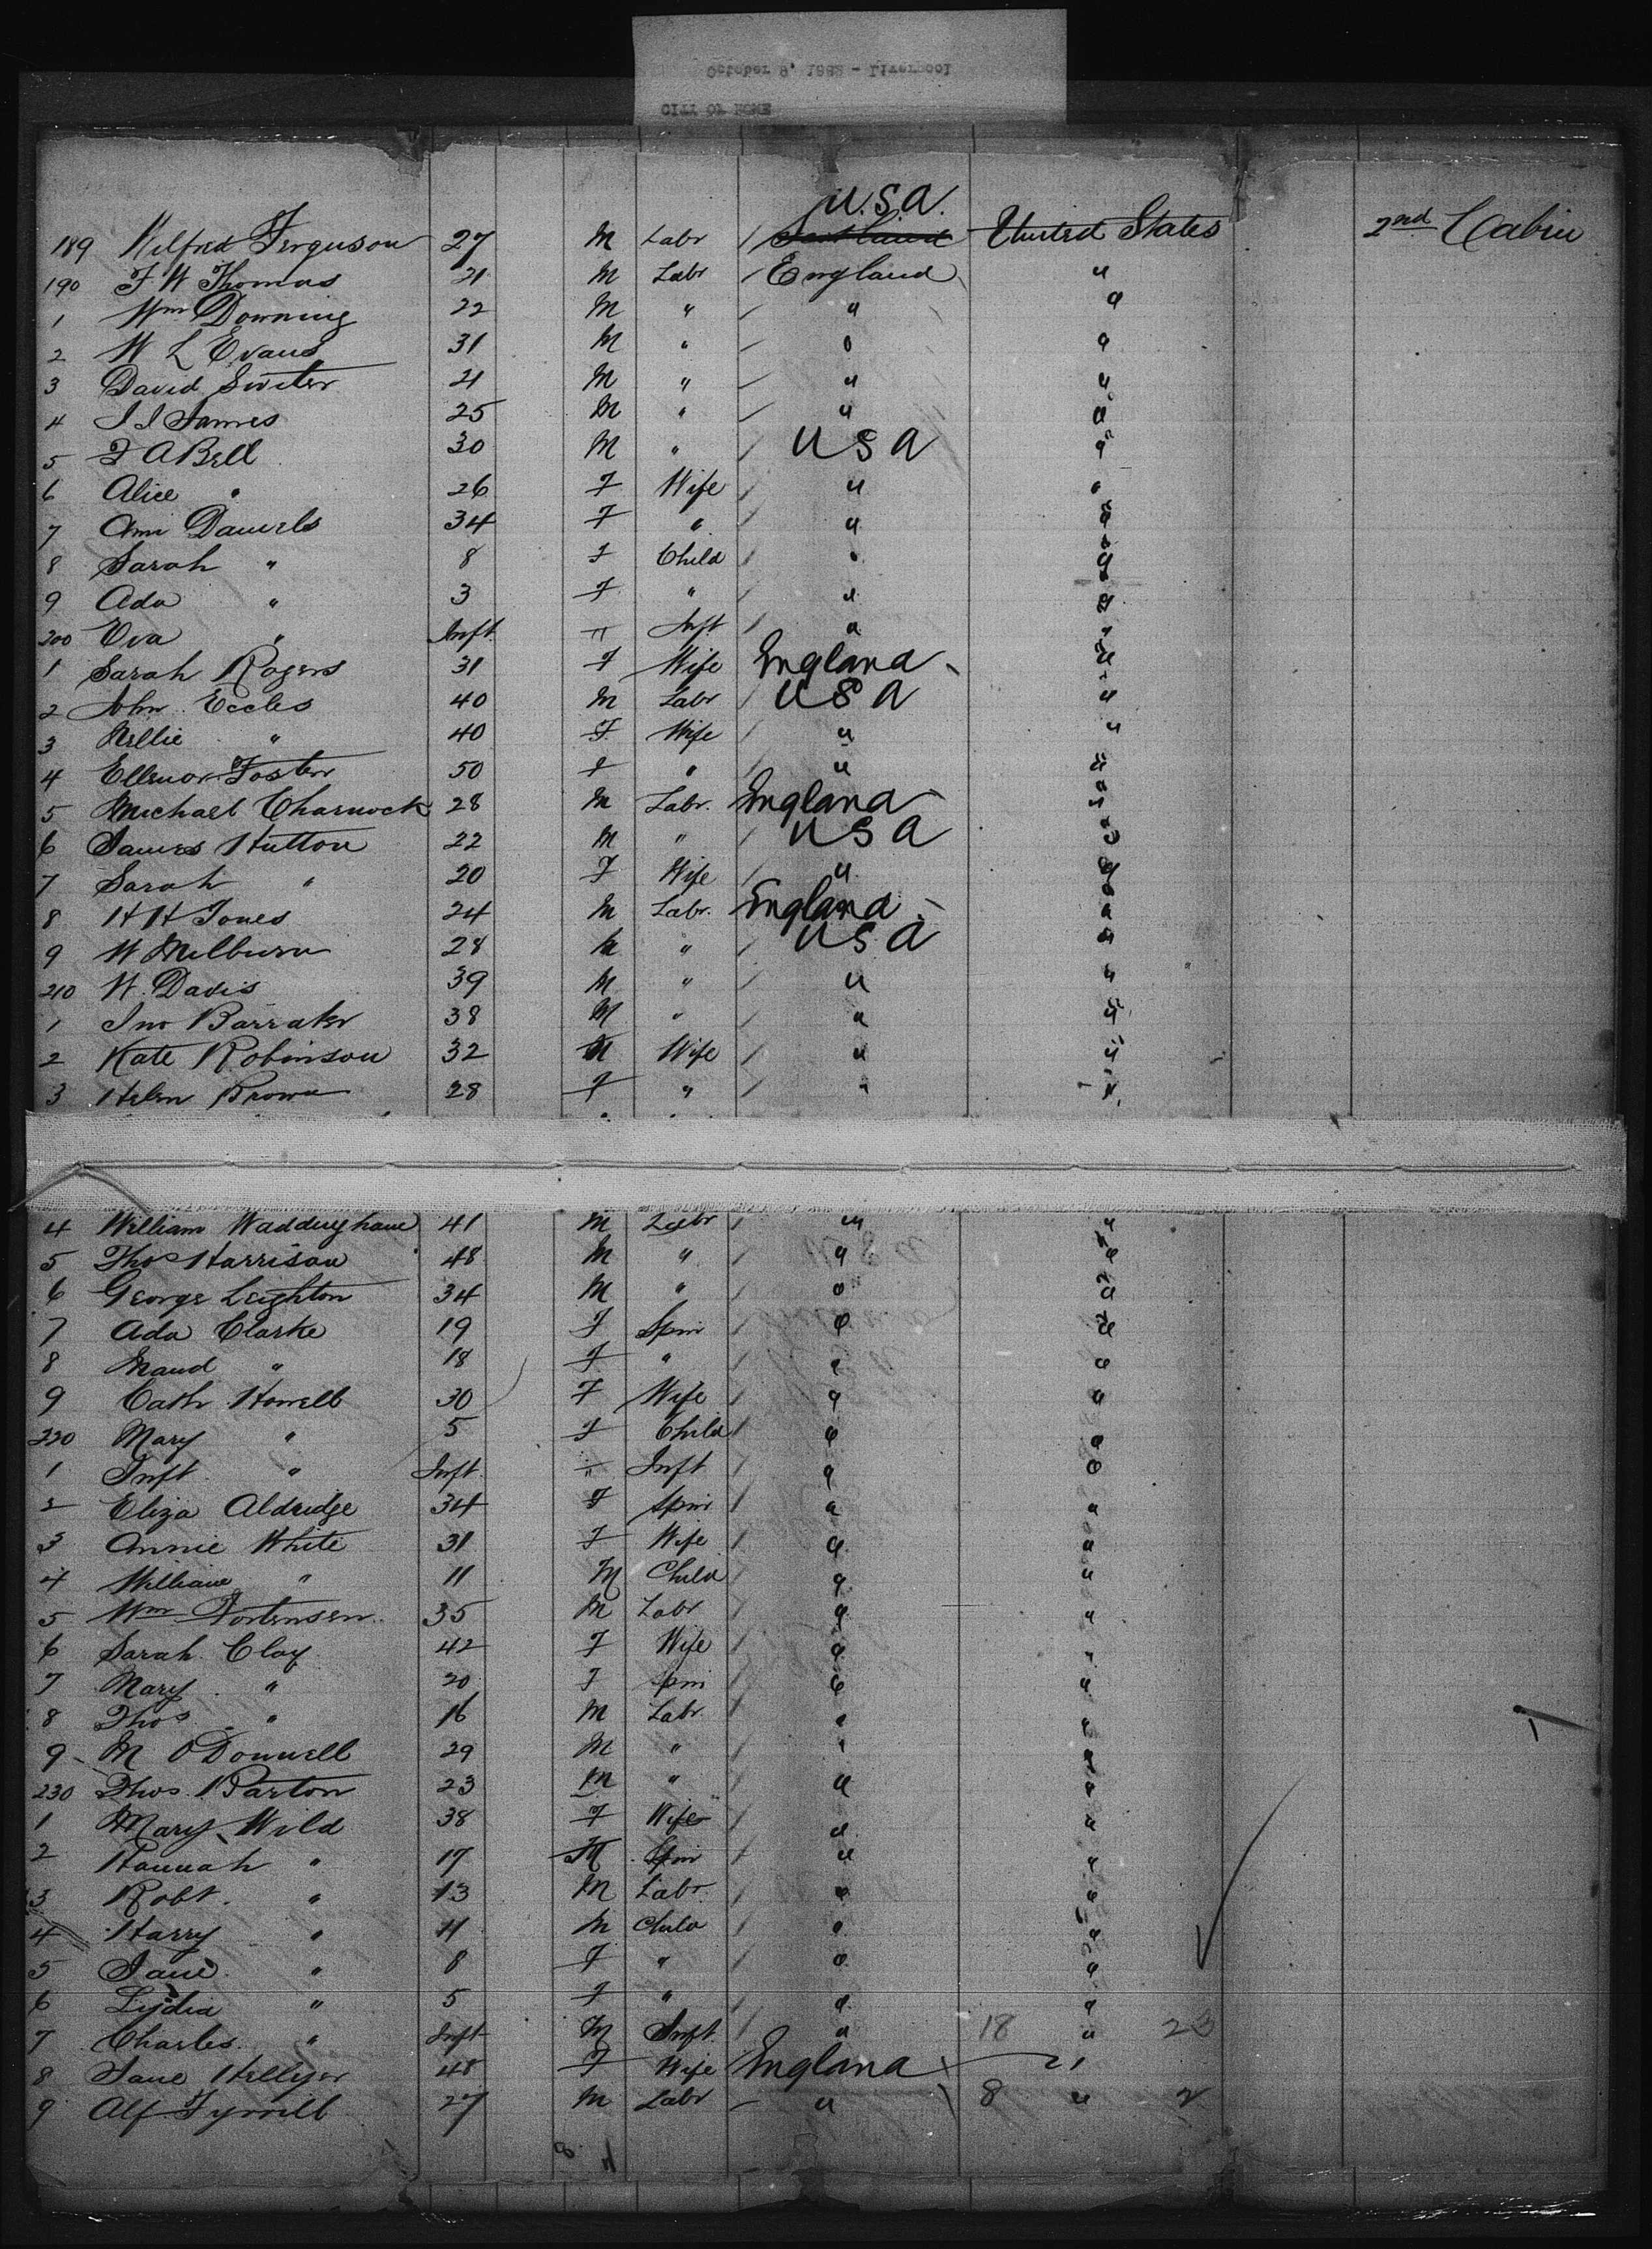 October 9, 1888 - Liverpool
CITY OF ROME
U.S.A.
189 Wilfred Ferguson 27 M Labr / Scotland United States 2nd Cabin
190 F W Thomas 21 M Labr / England "
1 Wm Downing 22 M " / " "
2 W L Evans 31 M " / " "
3 David 21 M " / " "
4 J J James 25 M " / " "
5 F A Bell 30 M " / USA "
6 Alice " 26 F Wife / " "
7 Ann Daniels 34 F " / " "
8 Sarah " 8 F Child / " "
9 Ada " 3 F " / " "
200 Eva " Inft " Inft / " "
1 Sarah Rogers 31 F Wife England "
2 John Eccles 40 M Labr / USA "
3 Nellie " 40 F Wife / " "
4 Ellenor Foster 50 F " / " "
5 Michael Charnock 28 M Labr. England "
6 James Hutton 22 M " / USA "
7 Sarah " 20 F Wife / " "
8 H H Jones 24 M Labr. England "
9 W Milburn 28 M " / USA "
210 W. Davis 39 M " / " "
1 Jno Barraker 38 M " / " "
2 Kate Robinson 32 Wife / " "
3 Helen Brown 28 F " / " "
4 William Waddingham 41 M Labr / " "
5 Thos Harrison 48 M " / " "
6 George Leighton 34 M " / " "
7 Ada Clarke 19 F Spin / " "
8 Maud " 18 F " / " "
9 Cath Howell 30 F Wife / " "
220 Mary " 5 F Child / " "
1 Inft " Inft " Inft / " "
2 Eliza Aldridge 34 F Spin / " "
3 Annie White 31 F Wife / " "
4 William " 11 M Child / " "
5 Wm 35 M Labr / " "
6 Sarah Clay 42 F Wife / " "
7 Mary " 20 F Spin / " "
8 Thos " 16 M Labr / " "
9 M O'Donnell 29 M " / " "
230 Thos. Barton 23 M " / " "
1 Mary Wild 38 F Wife / " "
2 Hannah " 17 Spin / " "
3 Robt. " 13 M Labr / " "
4 Harry " 11 M Child / " "
5 Jane " 8 F " / " "
6 Lydia " 5 F " / " "
7 Charles " Inft M Inft / " 18 " 23
8 Jane Hellyer 48 F Wife England "
9 Alf Tyrrell 27 M Labr - " 8 " 2